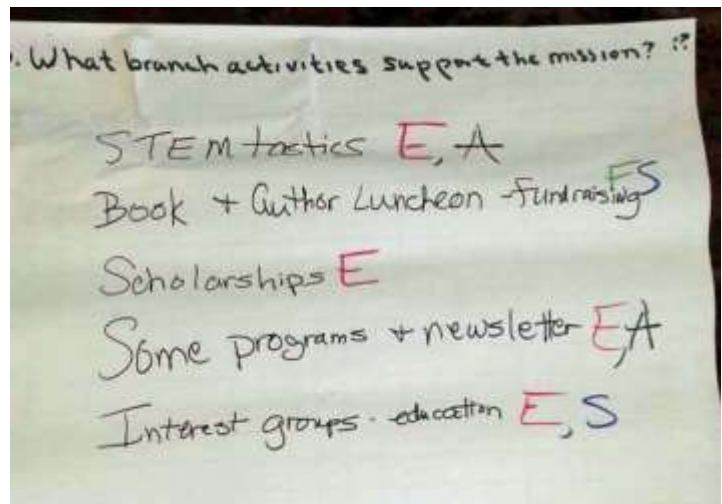 . What branch activities support the mission? !?
STEM tastics E, A
Book + Author Luncheon - fundraising FS
Scholarships E
Some programs + newsletter E, A
Interest groups - education E, S